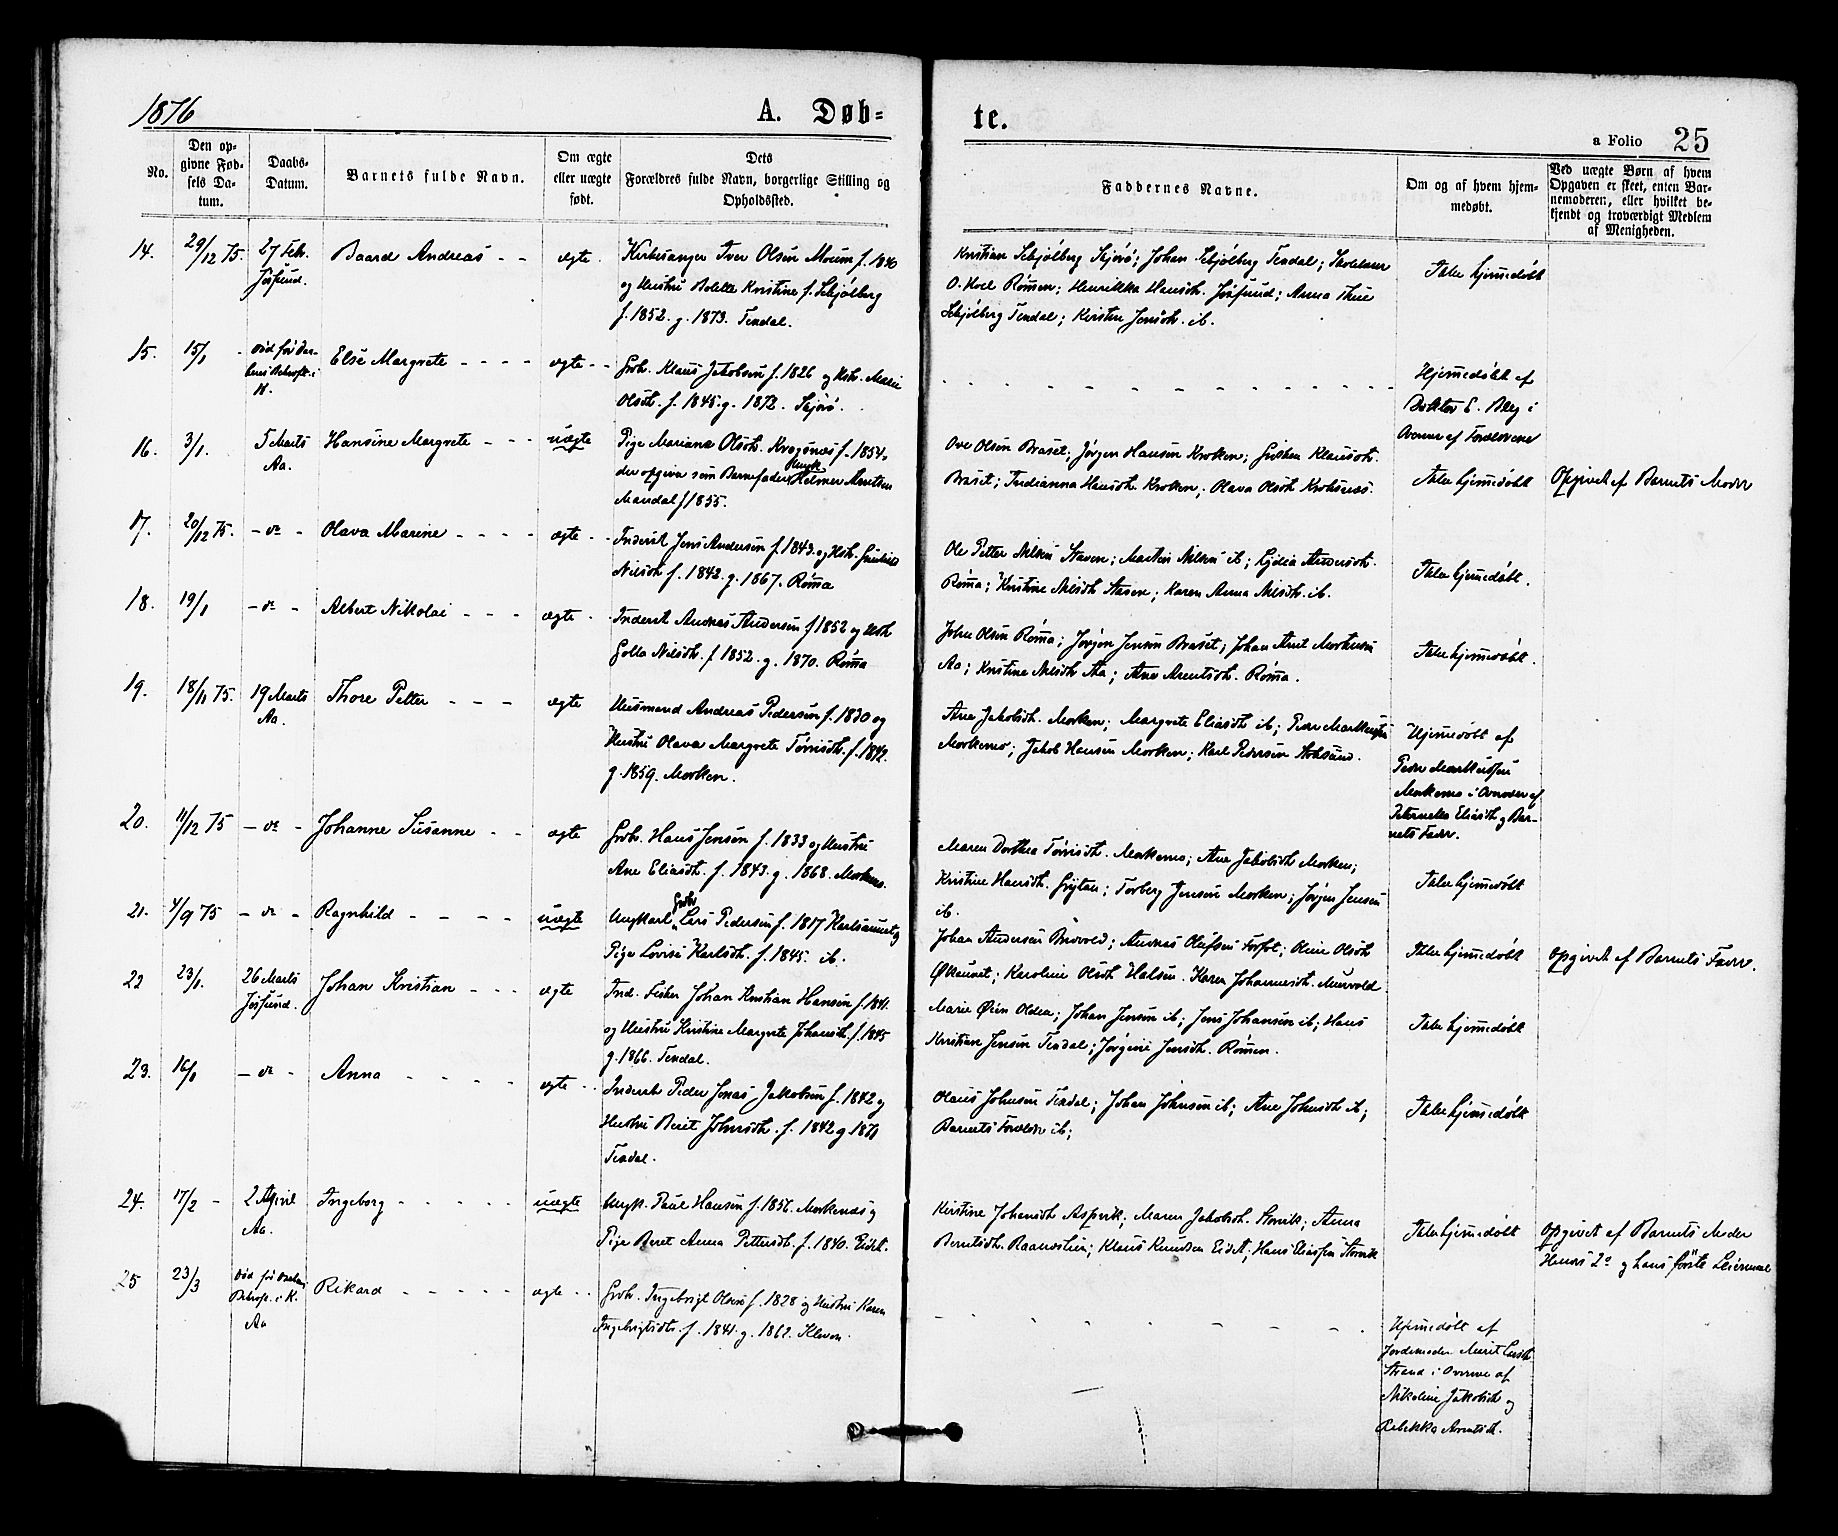 1876
A. Døb-
te.
a Folio 25
No.
Den op-
givne Fød-
sels Da-
tum.
Daabs-
Datum.
Barnets fulde Navn.
Om ægte
eller uægte
født.
Dets
Forældres fulde Navn, borgerlige Stilling og
Opholdssted.
Faddernes Navne.
Om og af hvem hjem-
medøbt.
Ved uægte Børn af hvem
Opgaven er skeet, enten Bar-
nemoderen, eller hvilket be-
kjendt og troværdigt Medlem
af Menigheden.
14.
29/12 75.
27 Febr.
Jøssund.
Baard Andreas
ægte
Kirkesanger Iver Olsen Moum f. 1840
og Hustru Bolette Kristine f. Schjølberg
f. 1852. g. 1873. Texdal.
Kristian Schjølberg; Johan Schjølberg Texdal;
O. Rømen; Hansdt. Jøssund; Anna
Schjølberg Texdal; Kirsten Jensdt. ib.
Ikke hjemmedøbt
15.
15/1
Død før Dar-
bens Bekræft. i
K.
Else Margrete
ægte
Grbr. Klaus Jakobsen f. 1826 og Hstr. Marie
Olsdt. f. 1845. g. 1872.
Hjemmedøbt af
Doktor E. i
Overvær af Forældrene
16.
3/1.
5 Marts
Aa.
Hansine Margrete
uægte
Pige Mariana Olsdt. f. 1854.
der opgiver som Barnefader Ungk. Helmer Arntsen
Mandal f 1855.
Ove Olsen Braset; Jørgen Hansen Kroken; Klausdt.
Braset; Ferdianna Hansdt. Kroken; Olava Olsdt.
Ikke hjemmedøbt
Opgivet af Barnets Moder
17.
20/12 75.
- do -
Olava Marine
ægte
Inderst Jens Andersen f. 1843. og Hstr.
Nilsdt f. 1842. g. 1867. Rømma
Ole Petter Nilsen Staven; Martin Nilsen ib; Lydia Andersdt.
Rømma; Kristine Nilsdt Staven; Karen Anna Nilsdt. ib.
Ikke hjemmedøbt.
18.
19/1
- do -
Albert Nikolai
ægte
Inderst Andreas Andersen f 1852 og Hstr
Nilsdt. f 1852. g. 1870. Rømma
John Olsen Rømma; Jørgen Jensen Braset; Johan Arnt
Aa; Kristine Nilsdt Aa; Ane Arentsdt. Rømma.
Ikke hjemmedøbt.
19.
18/11 75.
19 Marts
Aa.
Thore Petter
ægte
Husmand Andreas Pedersen f. 1830 og
Hustru Olava Margrete Tørrisdt. f. 1842.
g. 1859. Morken.
Ane Jakobsdt. Morken; Margrete Eliasdt ib; Peder
Morkemo; Jakob Hansen Morken; Karl Pedersen
Hjemmedøbt af
Peder Markussen
Morkemo i Overvær af
Eliasdt og Bar-
nets Fader.
20.
11/12 75
- do -
Johanne Susanne
ægte
Grbr. Hans Jensen f. 1833 og Hustru
Ane Eliasdt. f. 1843. g. 1868.
Maren Dorthea Tørrisdt. Morkemo; Ane Jakobsdt Morken;
Kristine Hansdt. Grytan; Torberg Jensen Morken; Jørgen Jensen
ib.
Ikke hjemmedøbt
21.
4/9 75
- do -
Ragnhild
uægte
Ungkarl, Grbr. Lars Pedersen f. 1817
Pige Lovise Karlsdt. f. 1845. ib.
Johan Andersen; Andreas Olufsen; Oline Olsdt
Karoline Olsdt Halsen. Karen Johannesdt.
Ikke hjemmedøbt
Opgivet af Barnets Fader.
22
23/1.
26 Marts
Jøssund.
Johan Kristian
ægte
Ind. Fisker Johan Kristian Hansen f. 1841.
og Hustru Kirstine Margrete Johansdt. f. 1845
g. 1866. Texdal.
Marie Olden; Johan Jensen ib; Jens Johansen ib; Hans
Kristian Jensen Texdal; Jørgine Jensdt. Rømen.
Ikke hjemmedøbt
23.
16/1
- do -
Anna
ægte
Inderst Peder Jonas Jakobsen f. 1842 og
Hustru Berit Johnsdt. f. 1842 g 1871
Texdal.
Olaus Johnsen Texdal; Johan Johnsen ib; Ane Johnsdt ib;
Barnets Forældre ib;
Ikke hjemmedøbt
24.
17/2
2 April
Aa.
Ingeborg
uægte
Ungk. Paul Hansen f. 1856. Morkenæs og
Pige Beret Anna Pettersdt. f. 1840. Eidet.
Kirstine Johansdt Aspvik; Maren Jakobsdt. Storvik; Anna
Berntsdt.; Klaus Knudsen Eidet; Hans Eliassen Storvik
Ikke hjemmedøbt
Opgivet af Barnets Moder
Hendes 2det og hans første Leiermaal
25
23/3
Død før Daabens
Bekræft. i K.
Aa
Rikard
ægte
Grbr. Ingebrigt Olsen f. 1828 og Hustru Karen
Ingebrigtsdt. f. 1841. g. 1862. Kleven.
Hjemmedøbt af
Jordemoder Marit Larsdt
Strand i Overvær af
Nikoline Jakobsdt og
Rebekka Arentsdt.